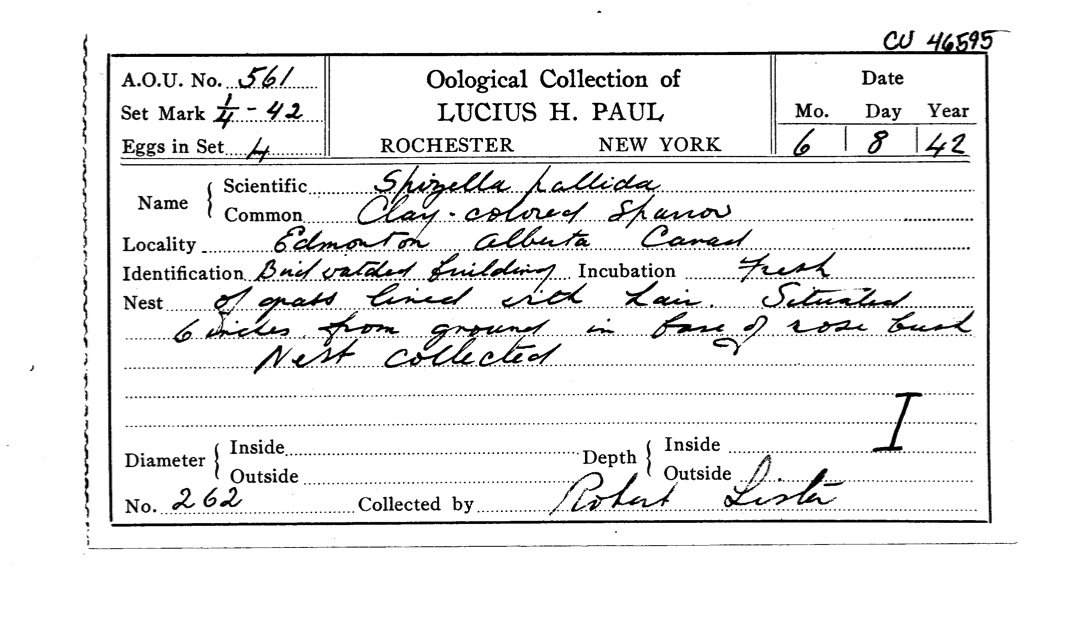 CU 46595
A.O.U. No. 561
Set Mark 1/4 - 42
Eggs in Set 4
Oological Collection of
LUCIUS H. PAUL
ROCHESTER NEW YORK
Date
Mo. Day Year
6 8 42
Name
Scientific Spizella pallida
Common Clay-colored Sparrow
Locality Edmonton Alberta Canad
Identification Bird watched building Incubation Fresh
Nest of grass lined with hair. Situated
6 inches from ground in base of rose bush
Nest collected
I
Diameter
Inside
Outside
Depth
Inside
Outside
No. 262 Collected by Robert Lister